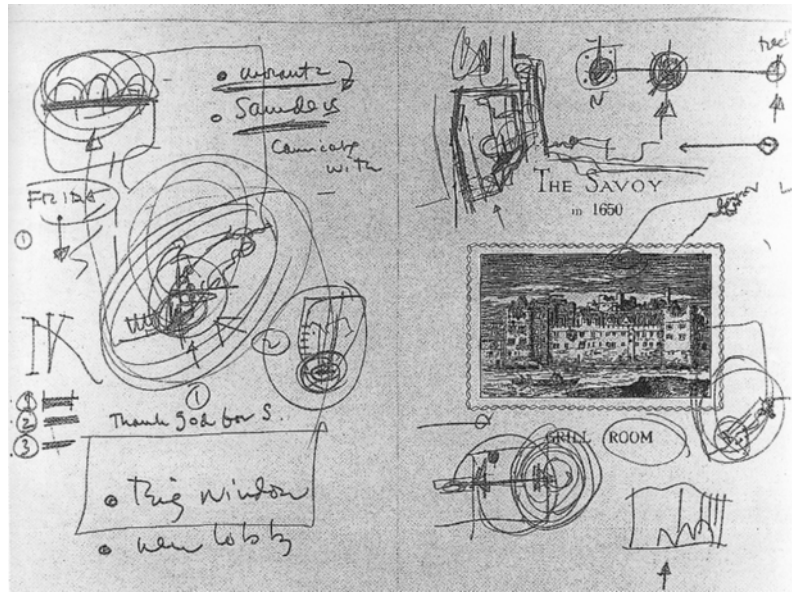 Saunders
with
FRIDA
①
②
①
①
②
③
Thank god for S..
Big window
new lobby
N
THE SAVOY
in 1650
GRILL ROOM